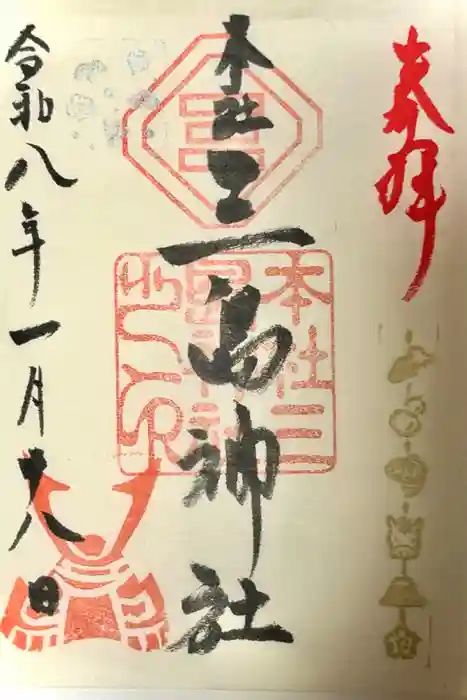 奉拝
本社
三島神社
本社三
島神社
之印
令和八年一月六日